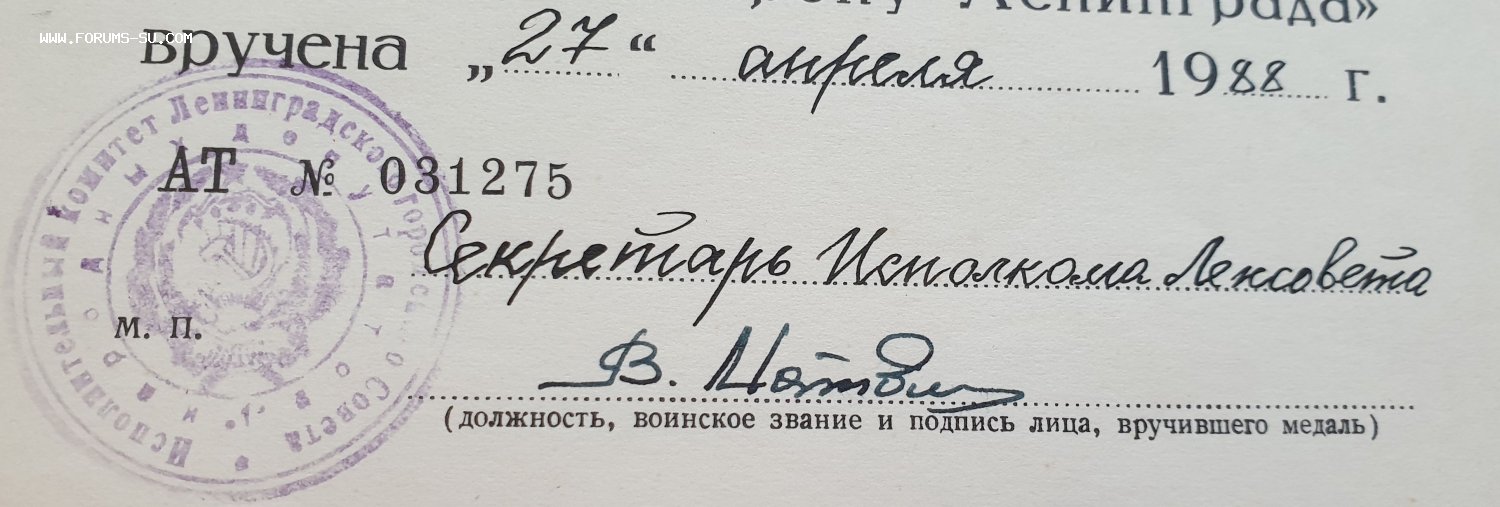 Ленинграда»
WWW.FORUMS-SU.COM
вручена „27“ апреля 1988 г.
Исполнительный Комитет Ленинградского городского Совета
народных депутатов
АТ № 031275
Секретарь Исполкома Ленсовета
м. п.
В.
(должность, воинское звание и подпись лица, вручившего медаль)